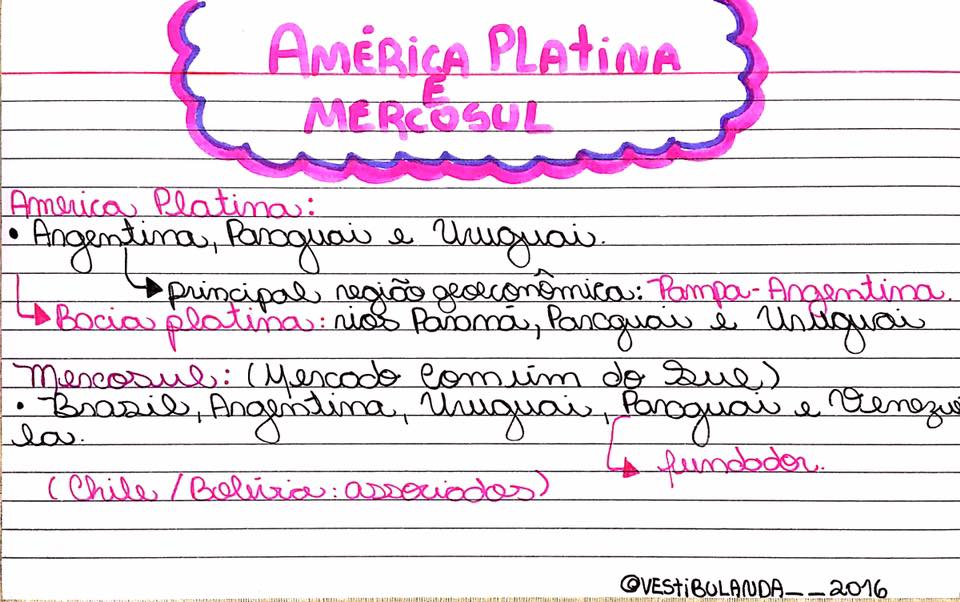 AMÉRICA PLATINA
E
MERCOSUL
America Platina:
• Argentina, Paraguai e Uruguai.
principal região geoeconômica: Pampa-Argentina.
Bacia platina: rios Paraná, Paraguai e Uruguai
Mercosul: (Mercado Comum do Sul)
• Brasil, Argentina, Uruguai, Paraguai e Venezue
la.
fundador.
(Chile / Bolívia: associados)
@VESTIBULANDA__2016